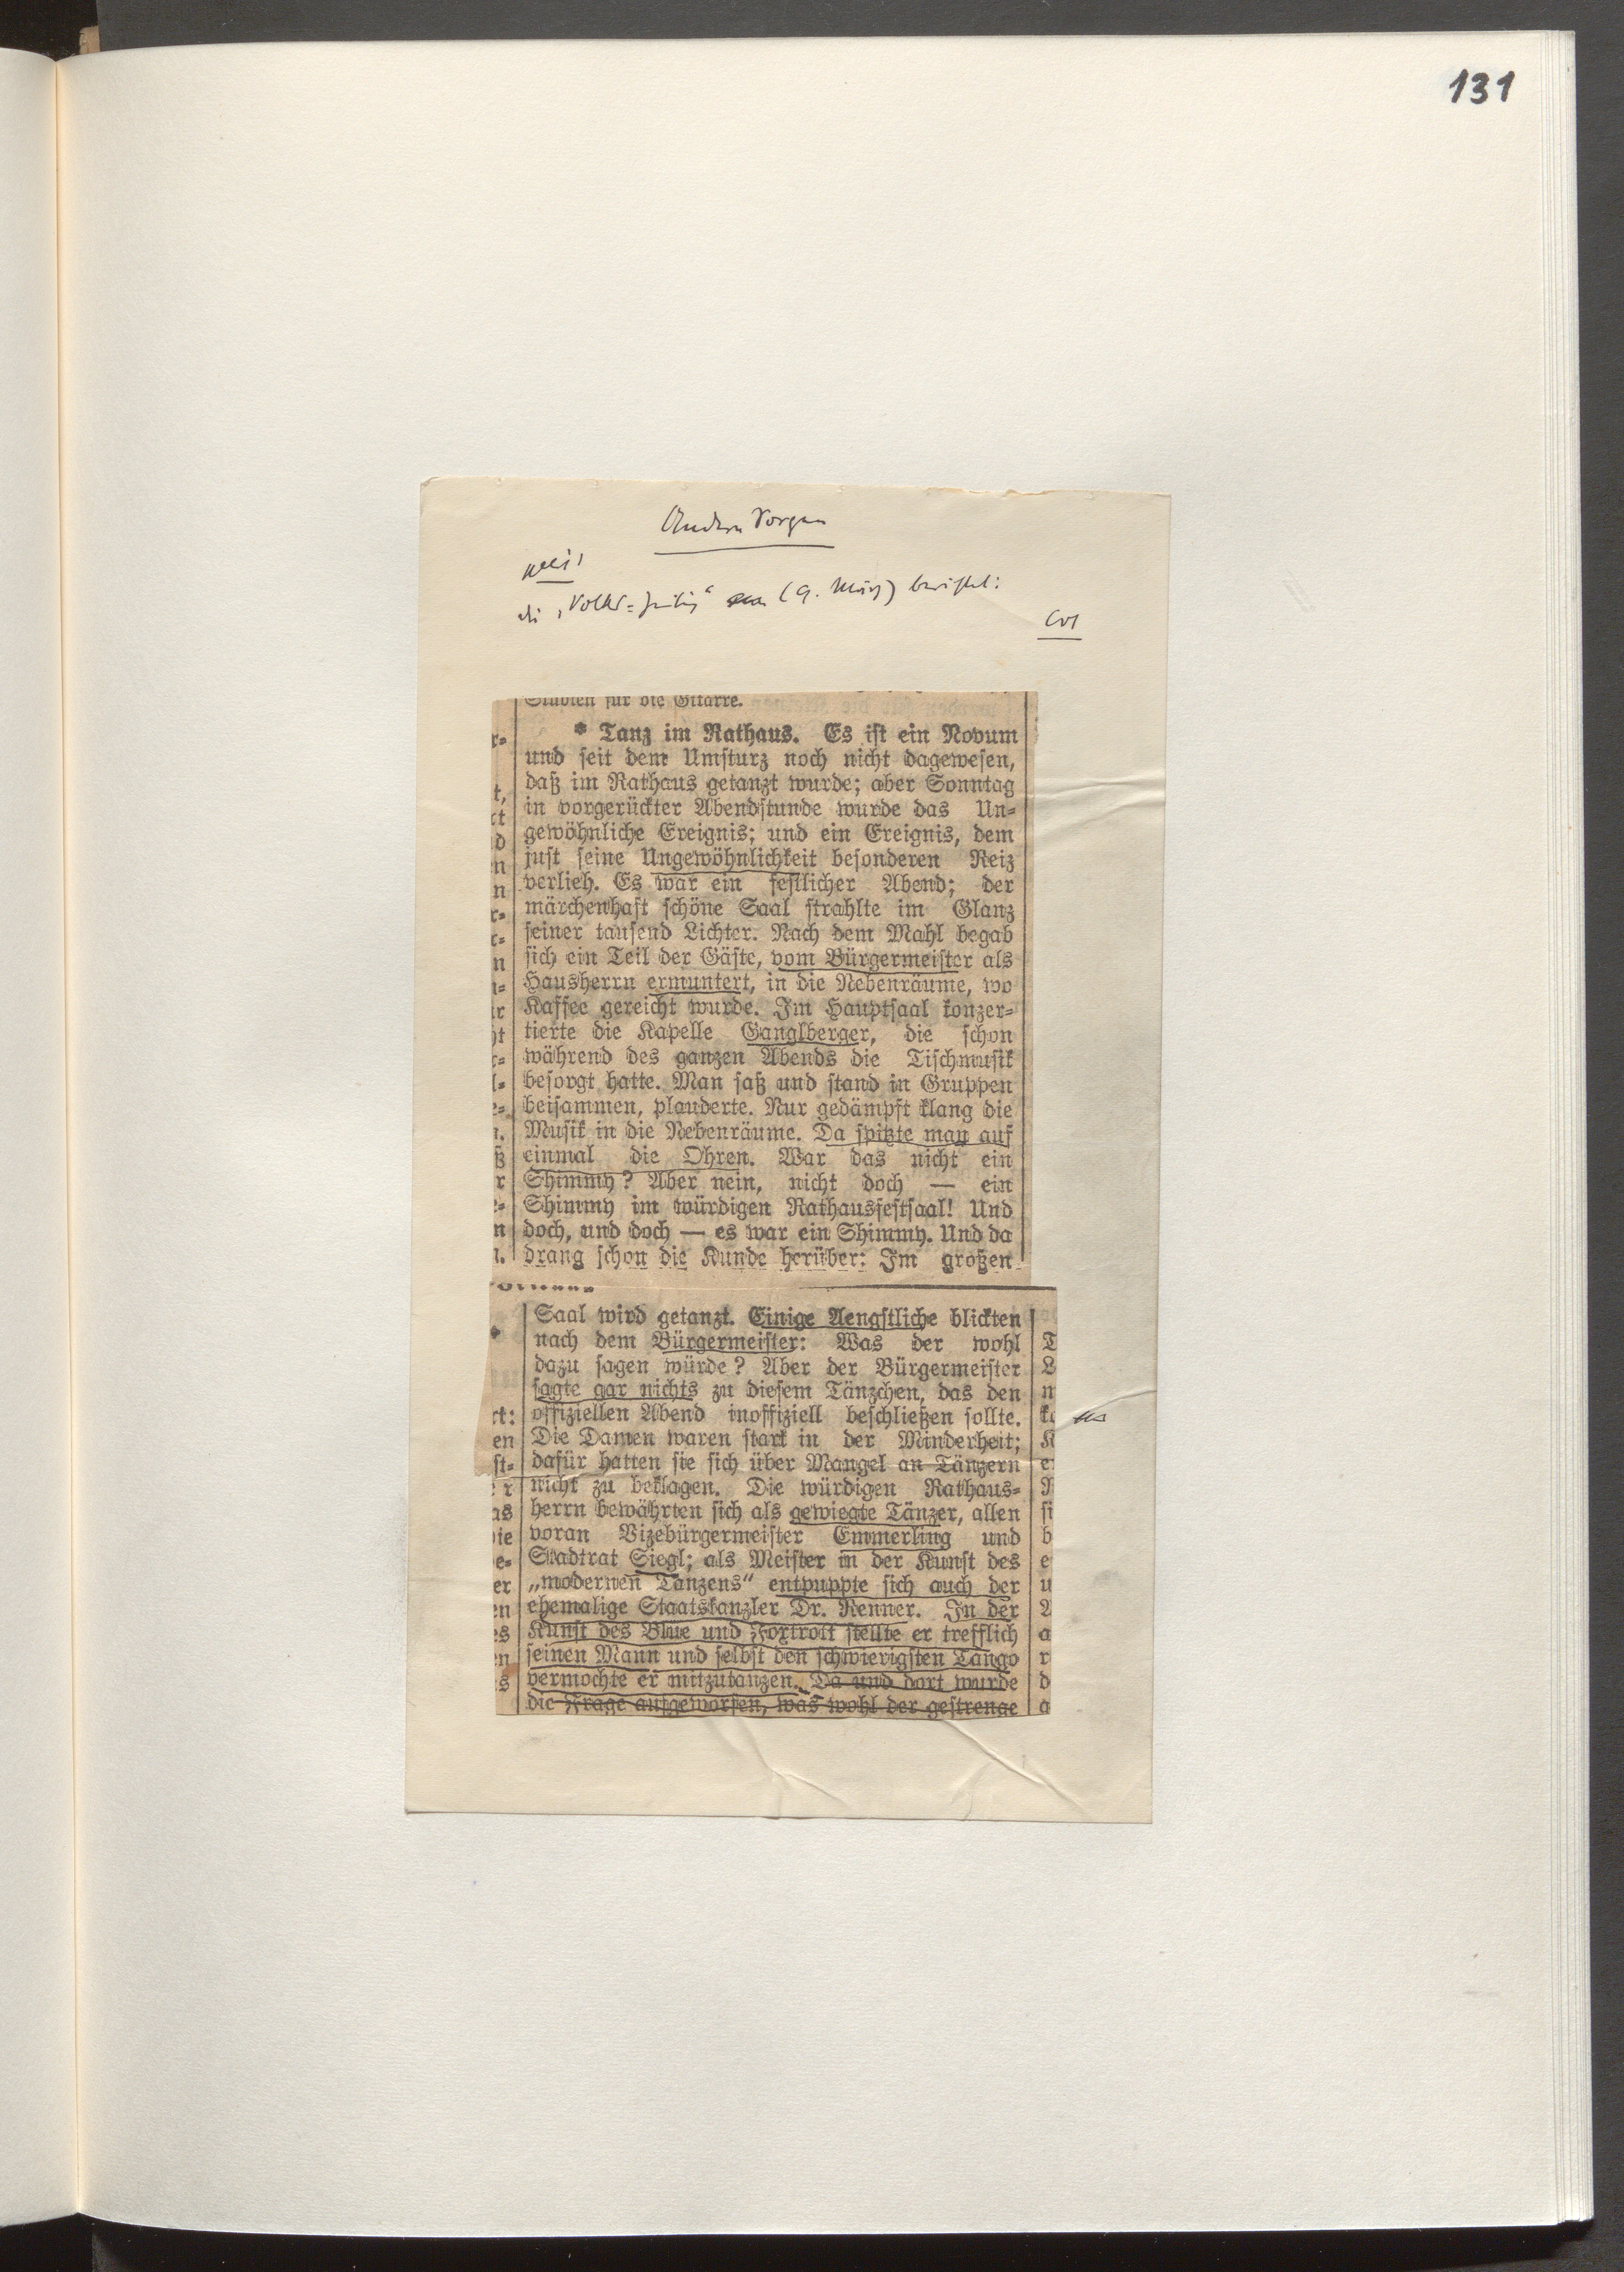 131
Andere Sorgen
die „Volks-Zeitung“ (9. März) berichtet:
Studien für die Gitarre.
* Tanz im Rathaus. Es ist ein Novum
und seit dem Umsturz noch nicht dagewesen,
daß im Rathaus getanzt wurde; aber Sonntag
in vorgerückter Abendstunde wurde das Un-
gewöhnliche Ereignis; und ein Ereignis, dem
just seine Ungewöhnlichkeit besonderen Reiz
verlieh. Es war ein festlicher Abend; der
märchenhaft schöne Saal strahlte im Glanz
seiner tausend Lichter. Nach dem Mahl begab
sich ein Teil der Gäste, vom Bürgermeister als
Hausherrn ermuntert, in die Nebenräume, wo
Kaffee gereicht wurde. Im Hauptsaal konzer-
tierte die Kapelle Ganglberger, die schon
während des ganzen Abends die Tischmusik
besorgt hatte. Man saß und stand in Gruppen
beisammen, plauderte. Nur gedämpft klang die
Musik in die Nebenräume. Da spitzte man auf
einmal die Ohren. War das nicht ein
Shimmy? Aber nein, nicht doch — ein
Shimmy im würdigen Rathausfestsaal! Und
doch, und doch — es war ein Shimmy. Und da
drang schon die Kunde herüber: Im großen
Saal wird getanzt. Einige Aengstliche blickten
nach dem Bürgermeister: Was der wohl
dazu sagen würde? Aber der Bürgermeister
sagte gar nichts zu diesem Tänzchen, das den
offiziellen Abend inoffiziell beschließen sollte.
Die Damen waren stark in der Minderheit;
dafür hatten sie sich über Mangel an Tänzern
nicht zu beklagen. Die würdigen Rathaus-
herrn bewährten sich als gewiegte Tänzer, allen
voran Vizebürgermeister Emmerling und
Stadtrat Siegl; als Meister in der Kunst des
„modernen Tanzens“ entpuppte sich auch der
ehemalige Staatskanzler Dr. Renner. In der
Kunst des Blue und Foxtrott stellte er trefflich
seinen Mann und selbst den schwierigsten Tango
vermochte er mitzutanzen. Da und dort wurde
die Frage aufgeworfen, was wohl der gestrenge